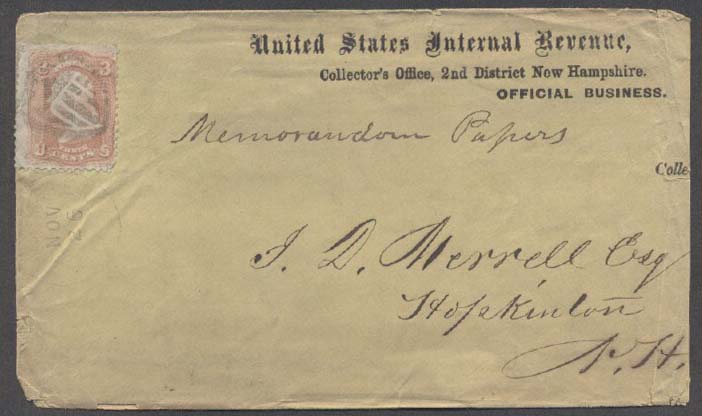 United States Internal Revenue,
Collector's Office, 2nd District New Hampshire.
OFFICIAL BUSINESS.
Memorandom Papers
Colle
I. D. Merrell Esq
Hopkinton
N. H.
NOV
26
3 3
CENTS